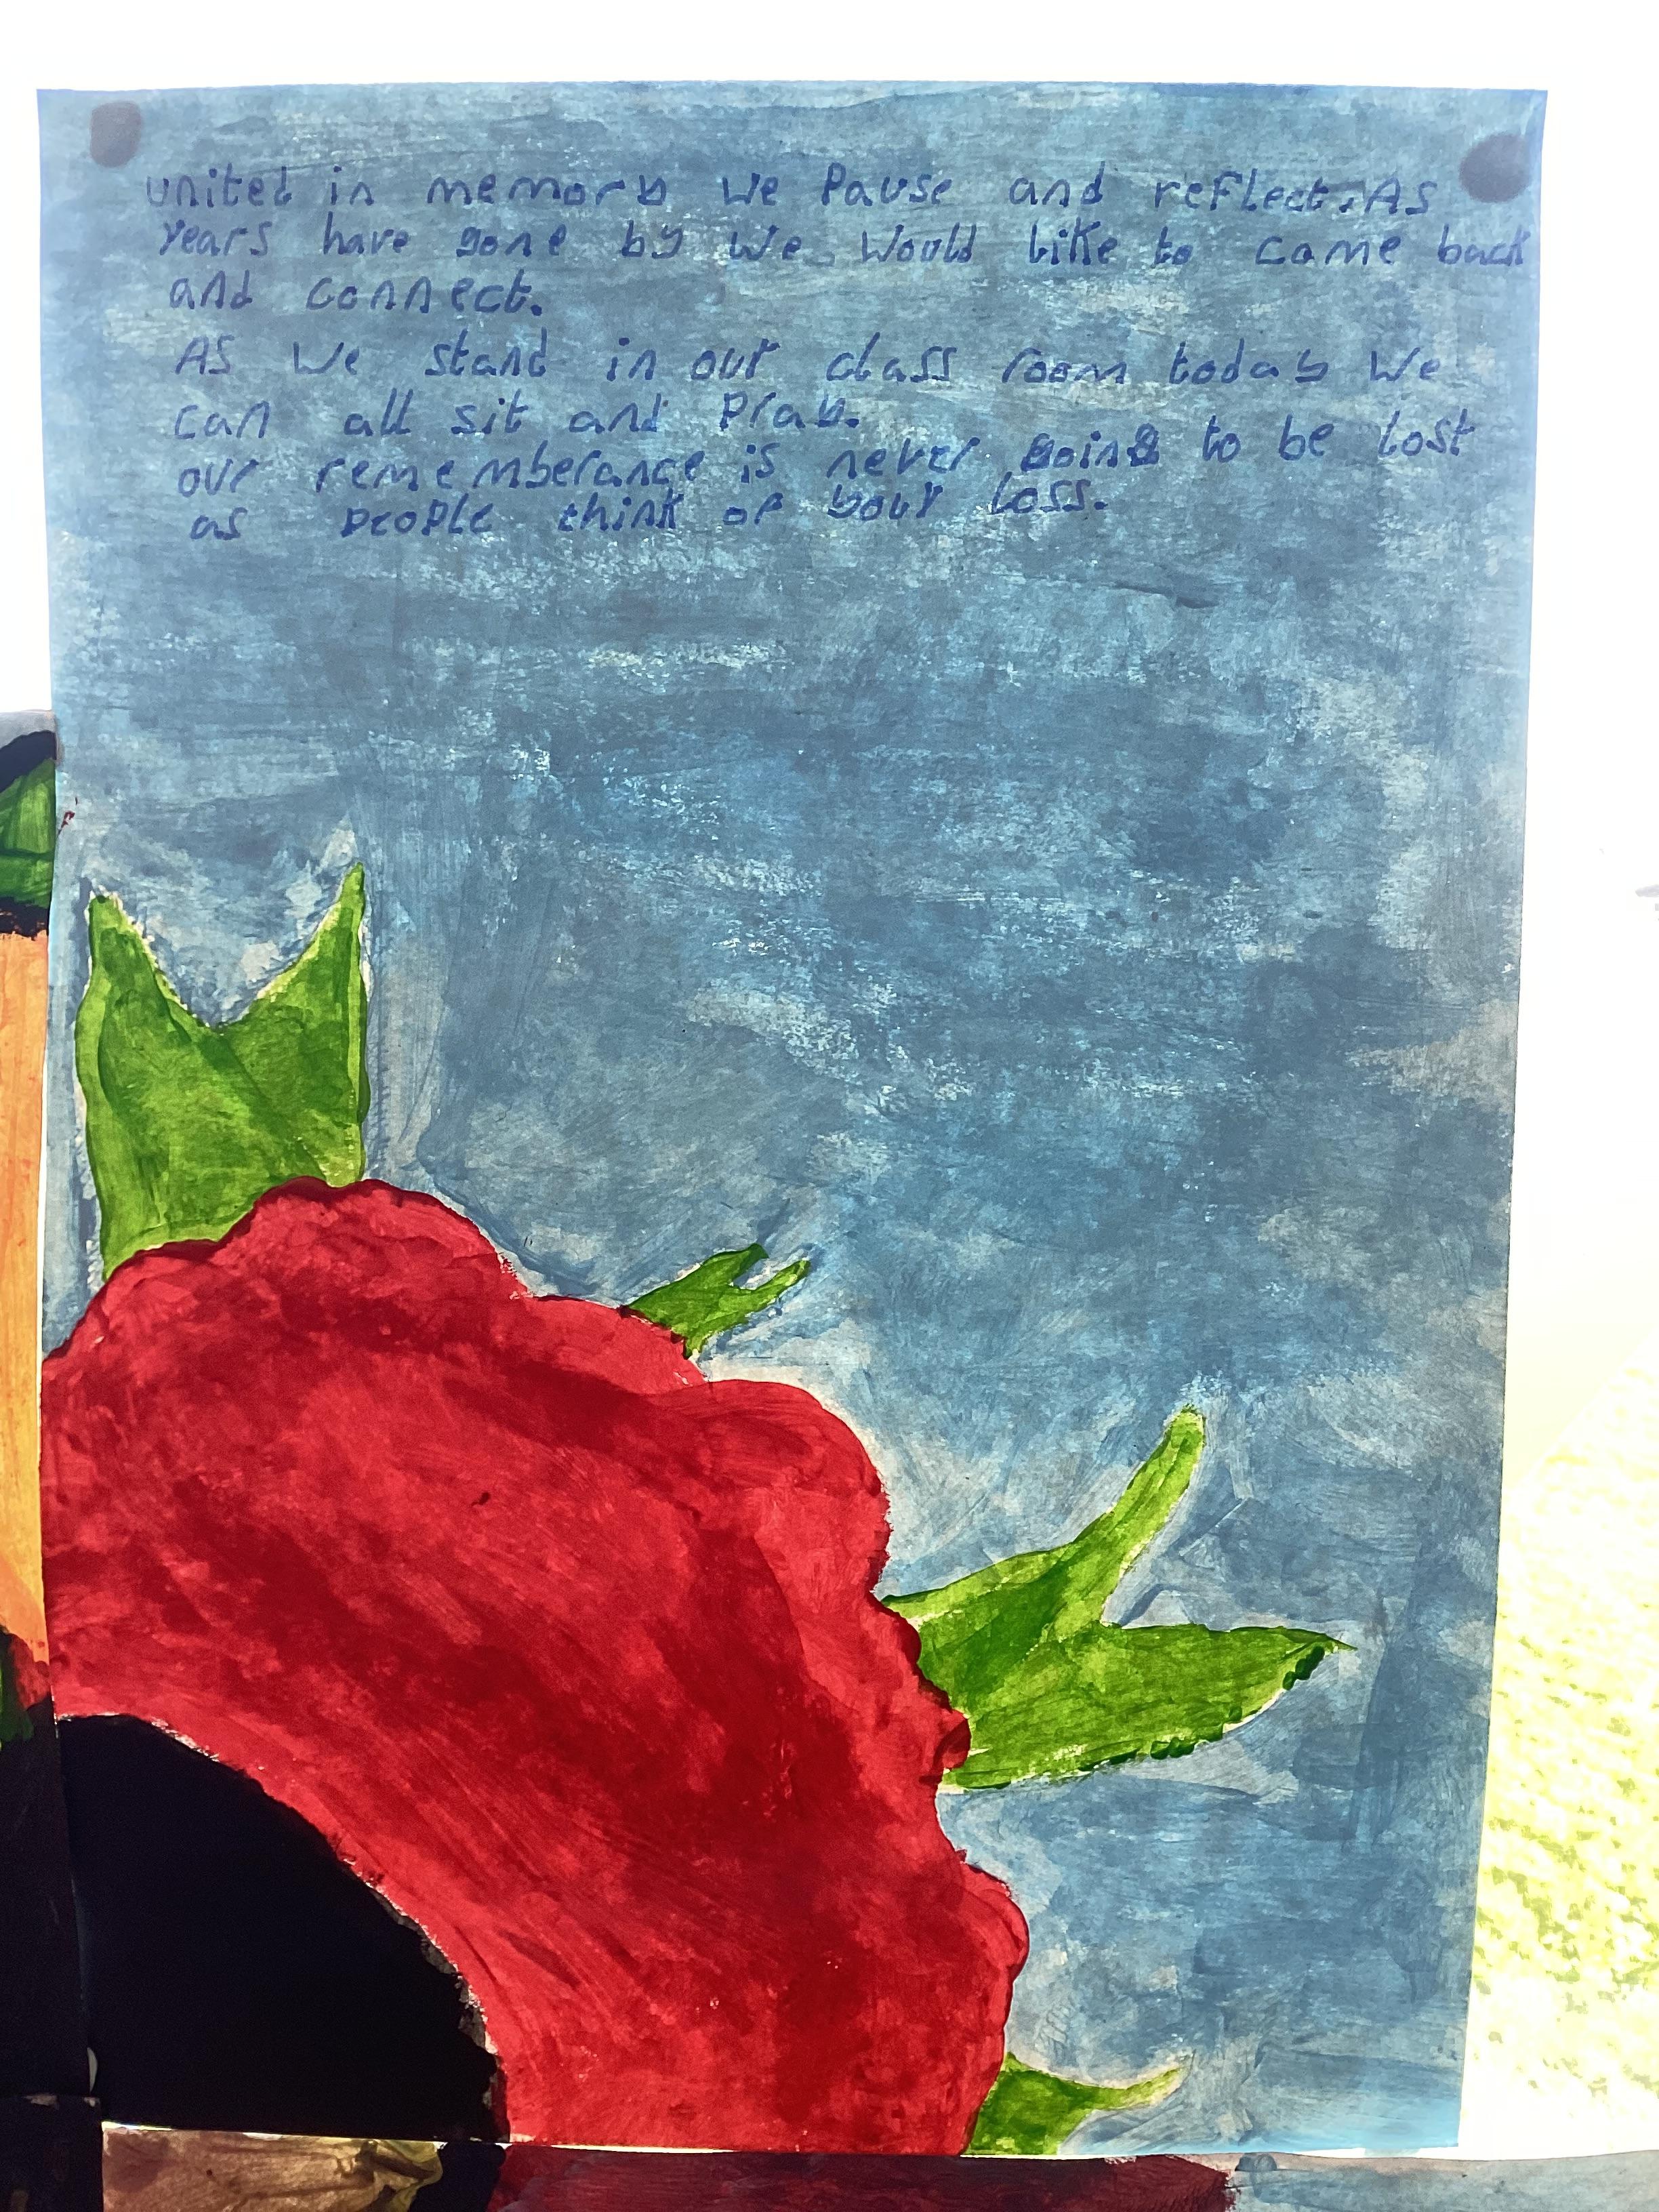 united in memory we Pause and reflect. As
years have gone by we would like to come back
and connect.
As we stand in our class room today we
can all sit and Pray.
our rememberance is never going to be lost
as people think of your loss.